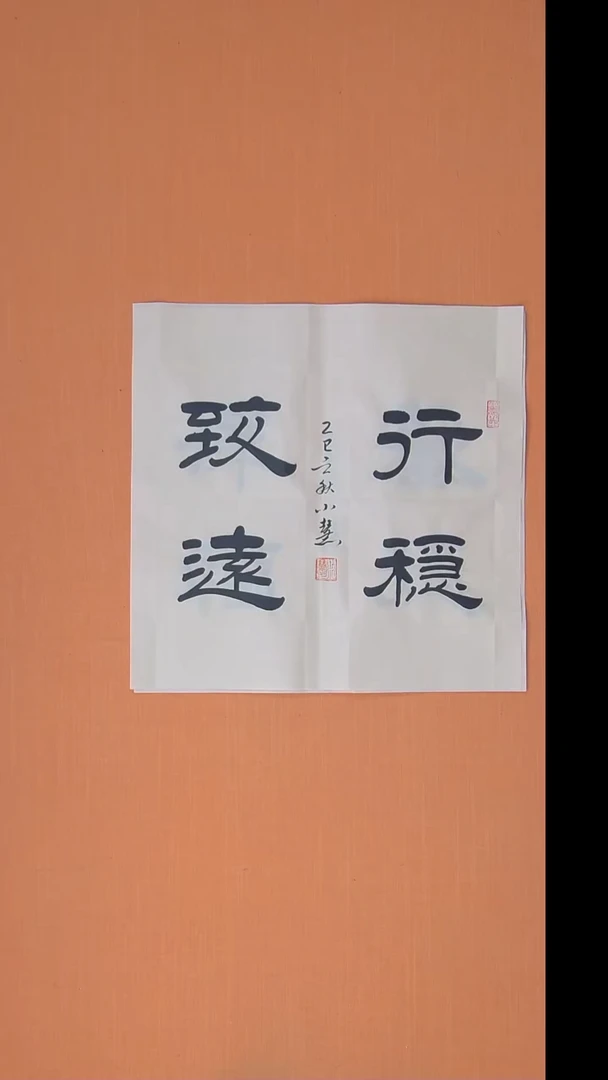 行穩
致遠
乙巳立秋小慧